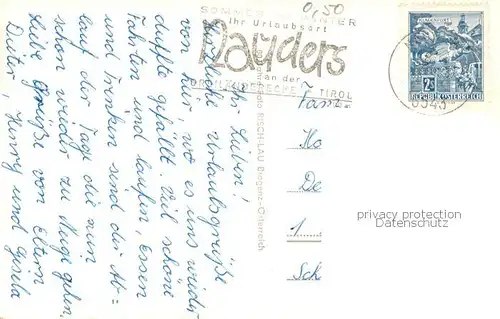 0,50
SOMMER WINTER
Ihr Urlaubsort
Nauders
an der
TIROL
6543
KLAGENFURT
2S
REPUBLIK ÖSTERREICH
Ihr Lieben!
Urlaubsgrüße
von hier, wo es uns wieder
dufte gefällt. Viel schöne
Fahrten und laufen, Essen
und trinken sind die Ab=
lauf der Tage die nun
schon wieder zu Neige gehn.
Liebe Grüße von Eltern
Dieter, Henry und Gisela
RISCH-LAU Bregenz-Österreich
Fam.
Ho
De
1
Sch
privacy protection
Datenschutz